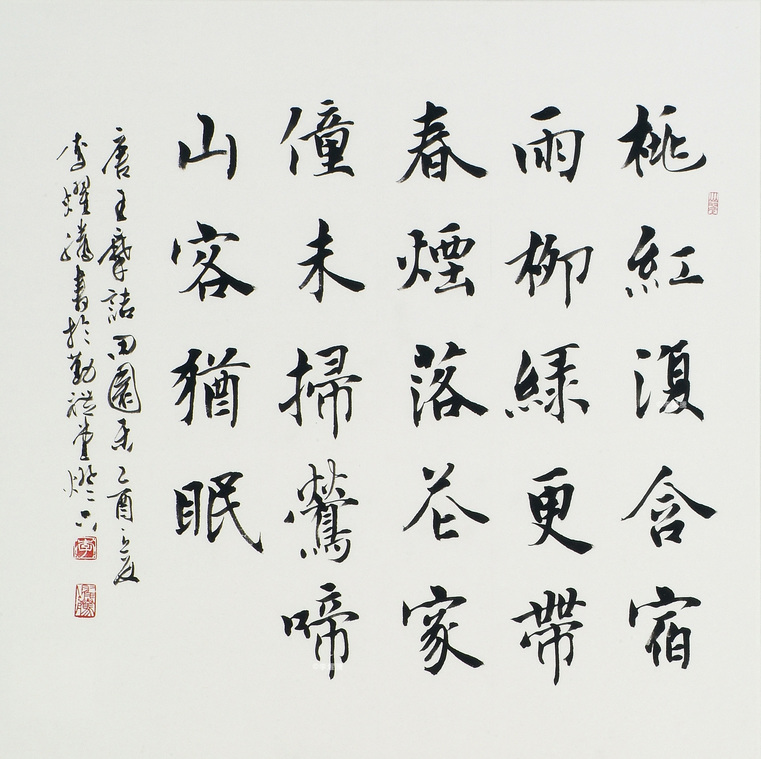 桃紅復含宿
雨柳緑更帶
春煙落花家
僮未掃鶯啼
山客猶眠
唐王摩詰田園樂乙酉之夏
李耀騰書於勤禮堂燈下